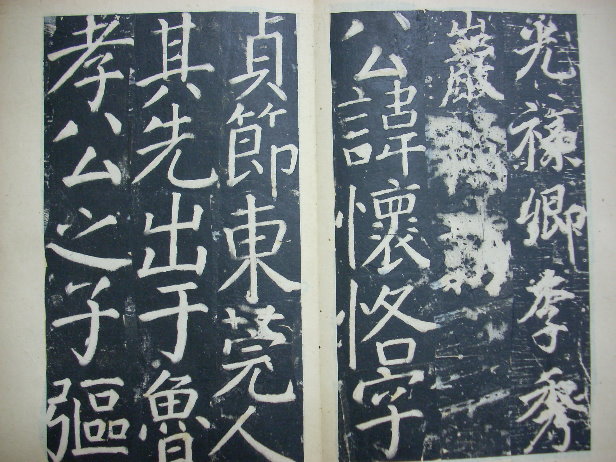 光祿卿李秀
巖
公諱懷恪字
貞節東莞人
其先出于魯
孝公之子彄